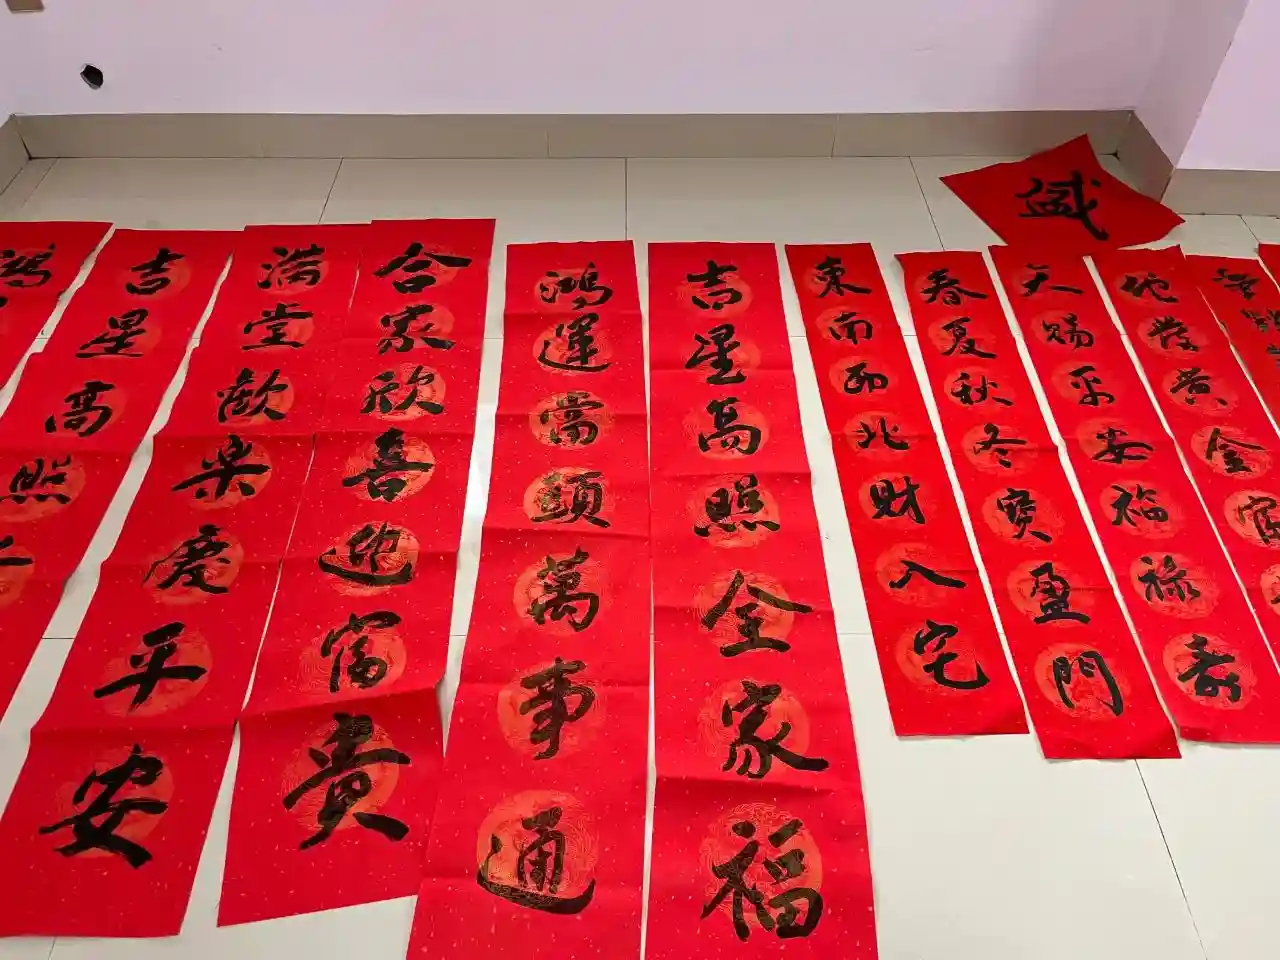 鴻
吉星高照
满堂歡樂慶平安
合家欣喜迎富貴
鴻運當頭萬事通
吉星高照全家福
東南西北財入宅
春夏秋冬寶盈門
天賜平安福禄壽
地發黄金富
盛